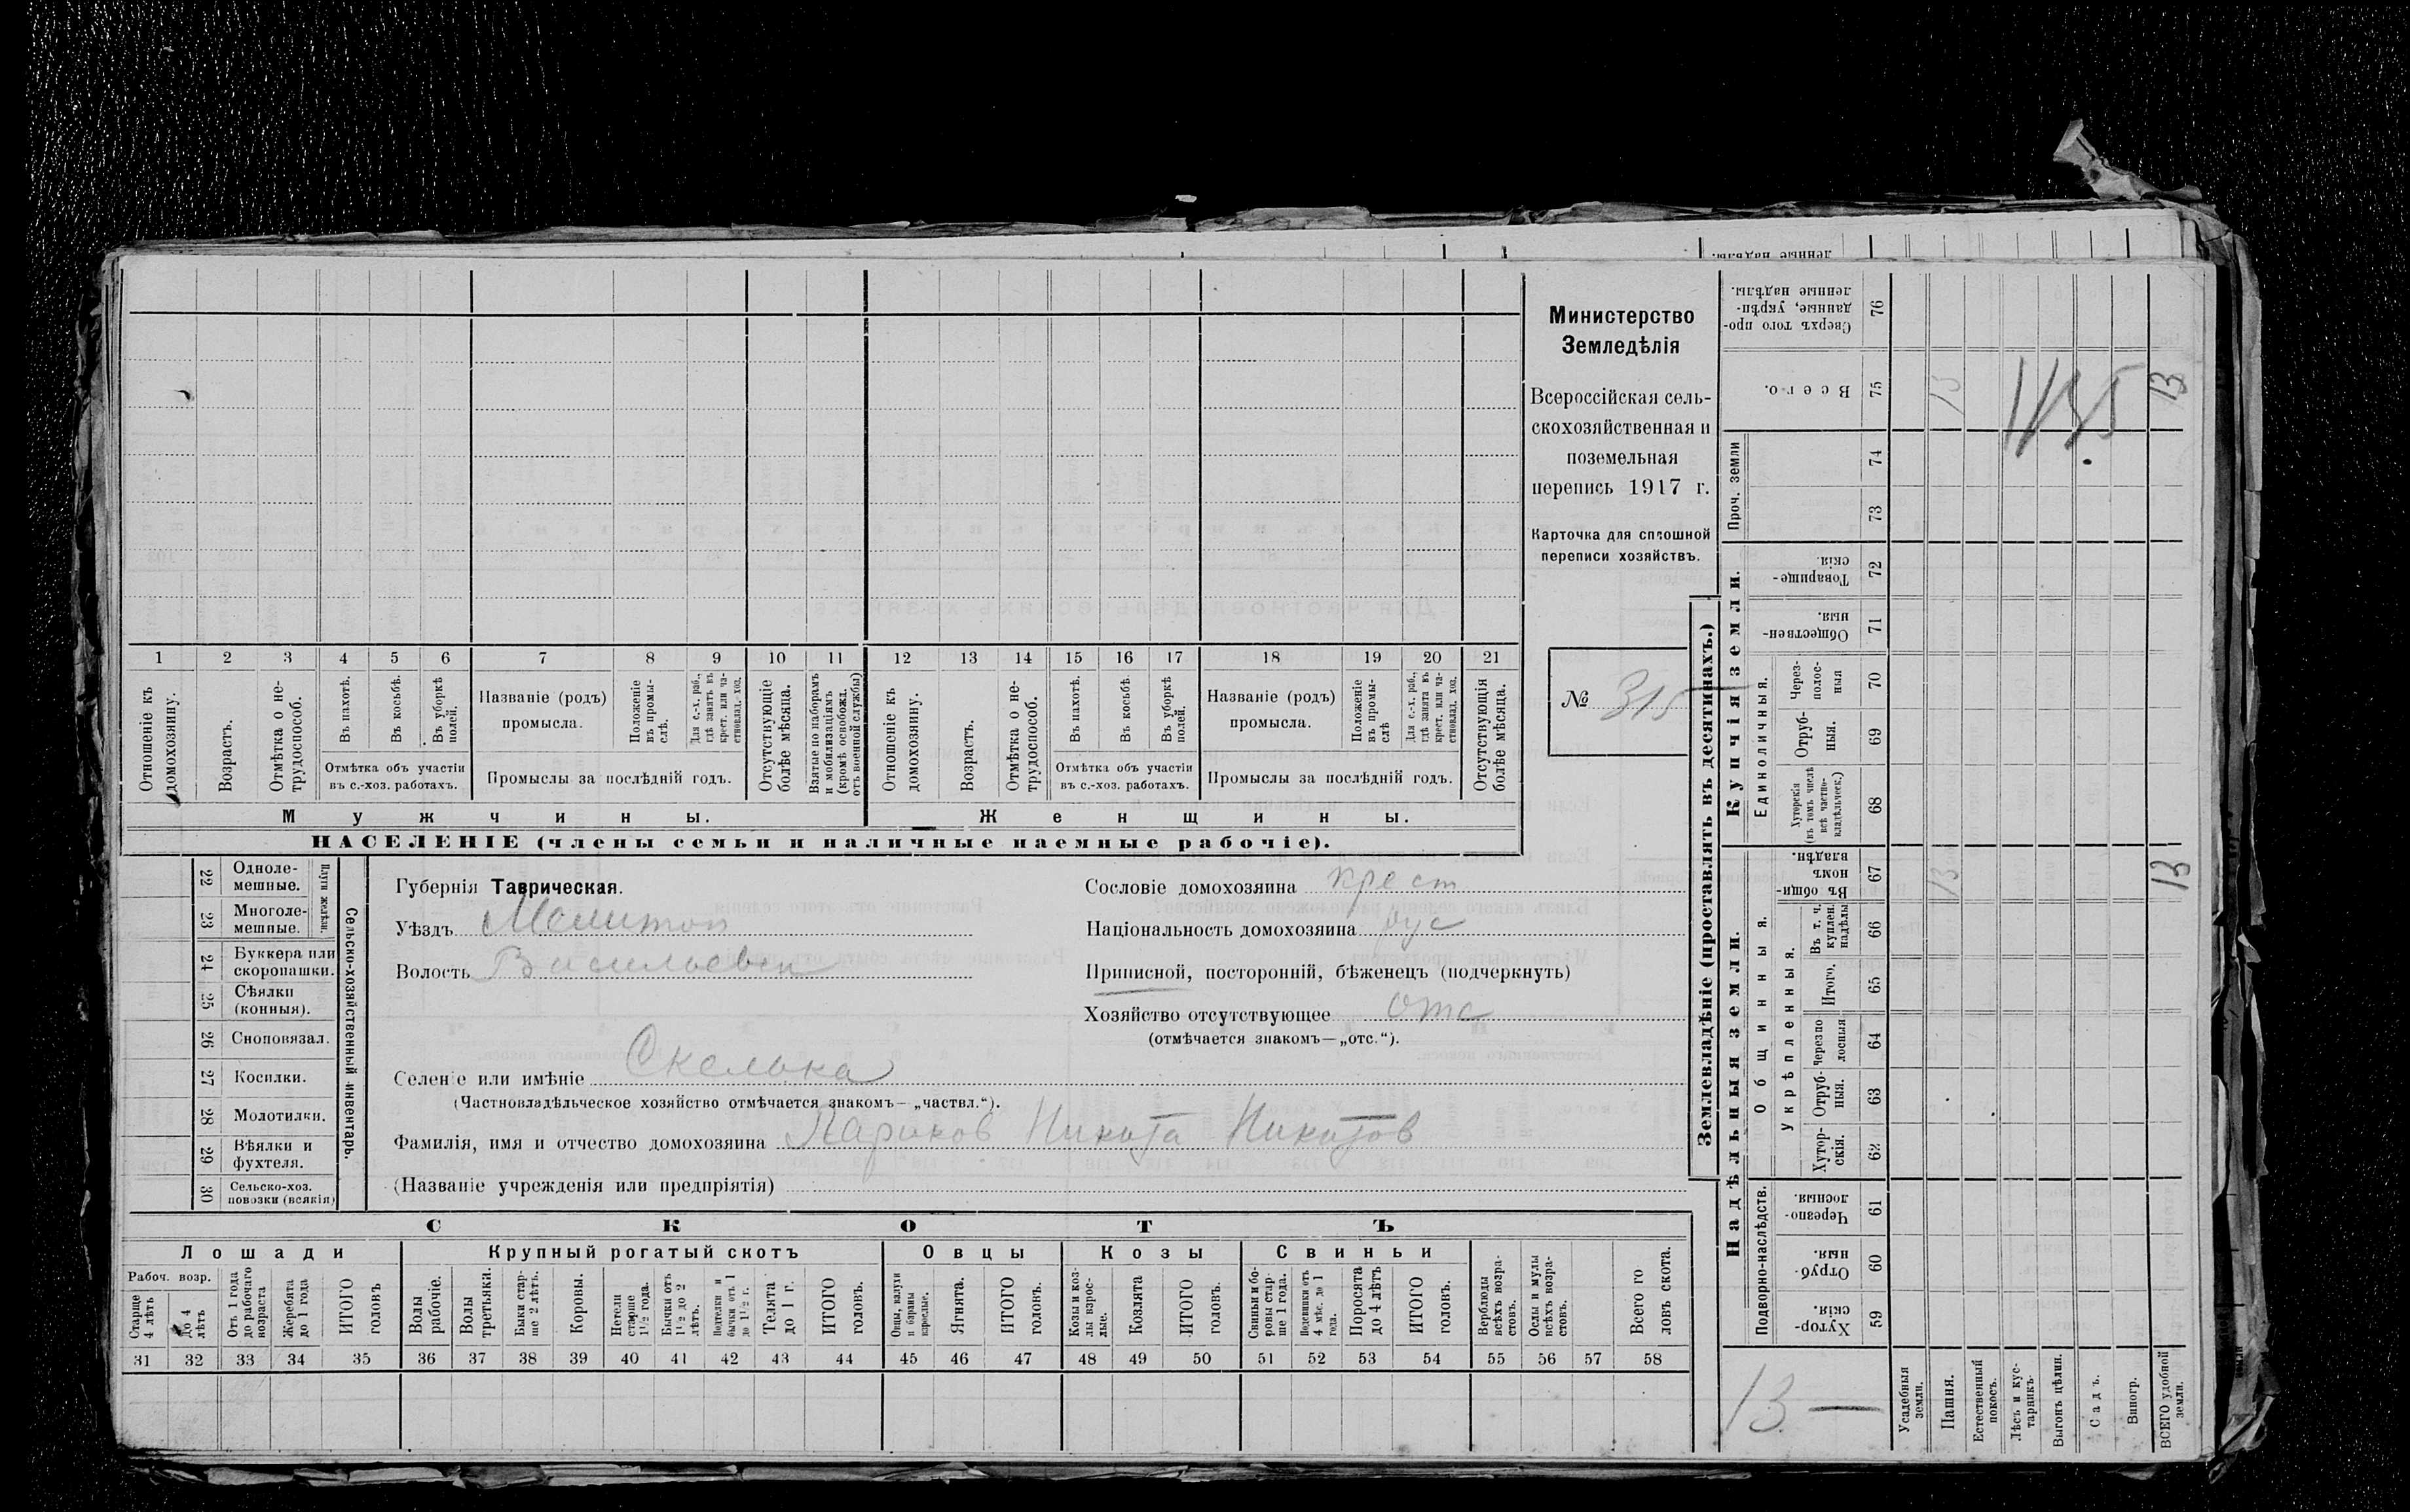 Министерство
Земледѣлія
Всероссійская сель-
скохозяйственная и
поземельная
перепись 1917 г.
Карточка для сплошной
переписи хозяйствъ.
№ 315
1 2 3 4 5 6 7 8 9 10 11 12 13 14 15 16 17 18 19 20 21
Отношеніе къ домохозяину.
Возрастъ.
Отмѣтка о не-трудоспособ.
Въ пахотѣ.
Въ косьбѣ.
Въ уборкѣ полей.
Отмѣтка объ участіи
въ с.-хоз. работахъ.
Названіе (родъ)
промысла.
Положеніе въ промы-слѣ.
Для с.-х. раб., гдѣ занятъ въ крест. или ча-стновлад. хоз.
Промыслы за послѣдній годъ.
Отсутствующіе болѣе мѣсяца.
Взятые по наборамъ и мобилизаціямъ (кромѣ освобожд. отъ военной службы)
Отношеніе къ домохозяину.
Возрастъ.
Отмѣтка о не-трудоспособ.
Въ пахотѣ.
Въ косьбѣ.
Въ уборкѣ полей.
Отмѣтка объ участіи
въ с.-хоз. работахъ.
Названіе (родъ)
промысла.
Положеніе въ промы-слѣ
Для с.-х. раб., гдѣ занята въ крест. или ча-стновлад. хоз.
Промыслы за послѣдній годъ.
Отсутствующія болѣе мѣсяца.
Мужчины.
Женщины.
НАСЕЛЕНІЕ (члены семьи и наличные наемные рабочіе).
22 Одноле-мешные.
23 Многоле-мешные.
Плуги желѣзн.
24 Буккера или скоропашки.
25 Сѣялки (конныя).
26 Сноповязал.
27 Косилки.
28 Молотилки.
29 Вѣялки и фухтеля.
30 Сельско-хоз. повозки (всякія)
Сельско-хозяйственный инвентарь.
Губернія Таврическая.
Уѣздъ Мелитоп
Волость Васильевск
Сословіе домохозяина крест
Національность домохозяина рус
Приписной, посторонній, бѣженецъ (подчеркнуть)
Хозяйство отсутствующее отс
(отмѣчается знакомъ—„отс.“).
Селеніе или имѣніе Скелька
(Частновладѣльческое хозяйство отмѣчается знакомъ—„частвл.“).
Фамилія, имя и отчество домохозяина Никита Никитов
(Названіе учрежденія или предпріятія)
СКОТЪ
Лошади
Крупный рогатый скотъ
Овцы
Козы
Свиньи
Рабоч. возр.
Старше 4 лѣтъ
До 4 лѣтъ
Отъ 1 года до рабочаго возраста
Жеребята до 1 года
ИТОГО головъ
Волы рабочіе.
Волы третьяки.
Быки стар-ше 2 лѣтъ.
Коровы.
Нетели старше 1½ года.
Бычки отъ 1½ до 2 лѣтъ.
Подтелки и бычки отъ 1 до 1½ г.
Телята до 1 г.
ИТОГО головъ.
Овцы, валухи и бараны взрослые.
Ягнята.
ИТОГО головъ.
Козы и коз-лы взрос-лые.
Козлята
ИТОГО головъ.
Свиньи и бо-ровы стар-ше 1 года.
Подсвинки отъ 4 мѣс. до 1 года.
Поросята до 4 лѣтъ
ИТОГО головъ.
Верблюды всѣхъ возра-стовъ.
Ослы и мулы всѣхъ возра-стовъ.
Всего го ловъ скота.
31 32 33 34 35 36 37 38 39 40 41 42 43 44 45 46 47 48 49 50 51 52 53 54 55 56 57 58
Землевладѣніе (проставлять въ десятинахъ.)
Надѣльныя земли.
Купчія земли.
Проч. земли
Подворно-наслѣдств.
Общинныя.
Укрѣпленныя.
Единоличныя.
Сверхъ того про-данные, укрѣп-ленные надѣлы. 76
Всего. 75 13 13
74
73
Товарище-скія 72
Обществен-ныя 71
Через-полос-ныя 70
Отруб-ныя. 69
Хуторскія (въ томъ числѣ всѣ частно-владѣльческ.) 68
Въ общин-номъ владѣн. 67 13 13
Въ т. ч. куплен. надѣлы 66
Итого. 65
Черезпо лосныя 64
Отруб-ныя. 63
Хутор-скія. 62
Черезпо-лосныя. 61
Отруб-ныя. 60
Хутор-скія. 59
13 —
Усадебныя земли.
Пашня.
Естественный покосъ.
Лѣсъ и кус-тарникъ.
Выгонъ цѣлин.
Садъ.
Виногр.
ВСЕГО удобной земли.